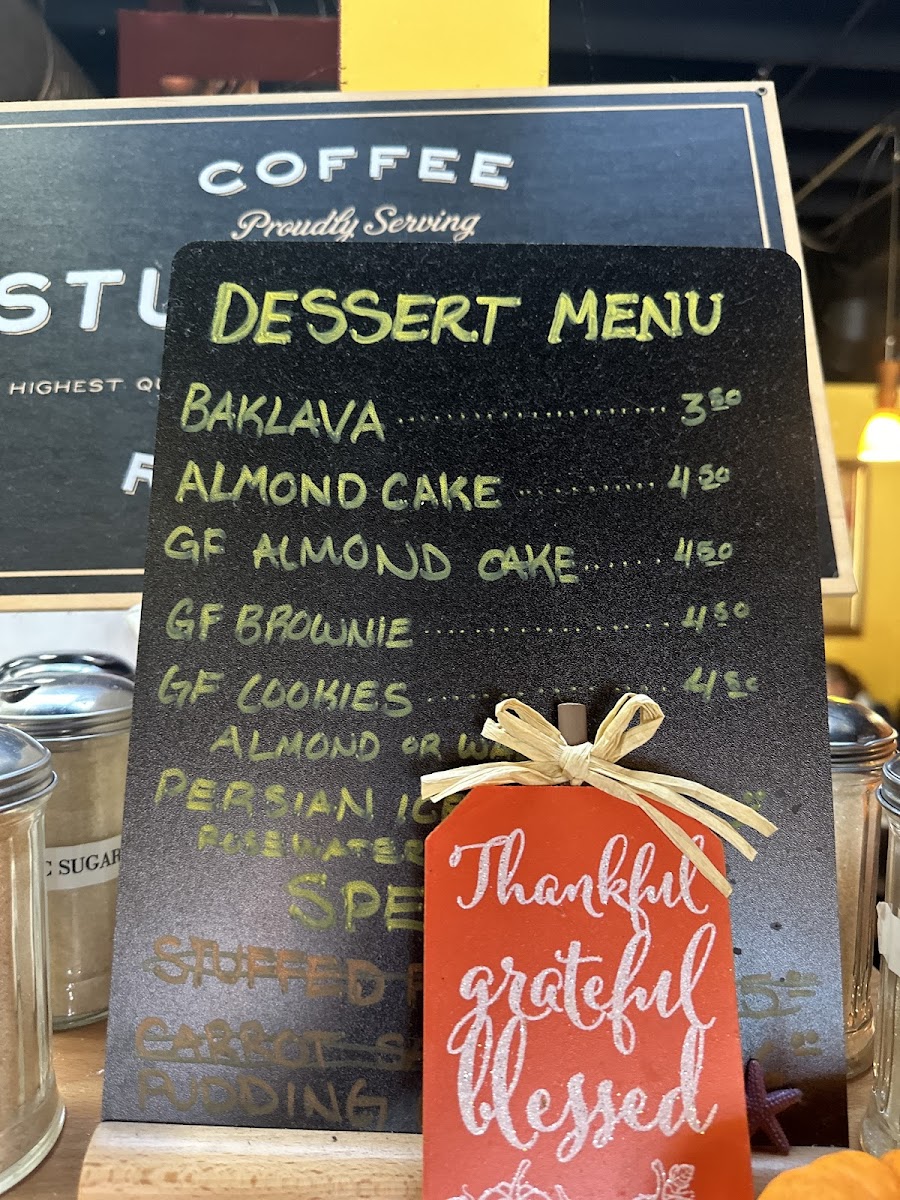 COFFEE
Proudly Serving
STU
HIGHEST QU
DESSERT MENU
BAKLAVA .................... 3 50
ALMOND CAKE .......... 4 50
GF ALMOND CAKE ...... 4 50
GF BROWNIE ................ 4 50
GF COOKIES ................ 4 50
ALMOND OR WA
PERSIAN ICE
ROSEWATER
SPE
STUFFED
CARROT
PUDDING
C SUGAR
Thankful
grateful
blessed